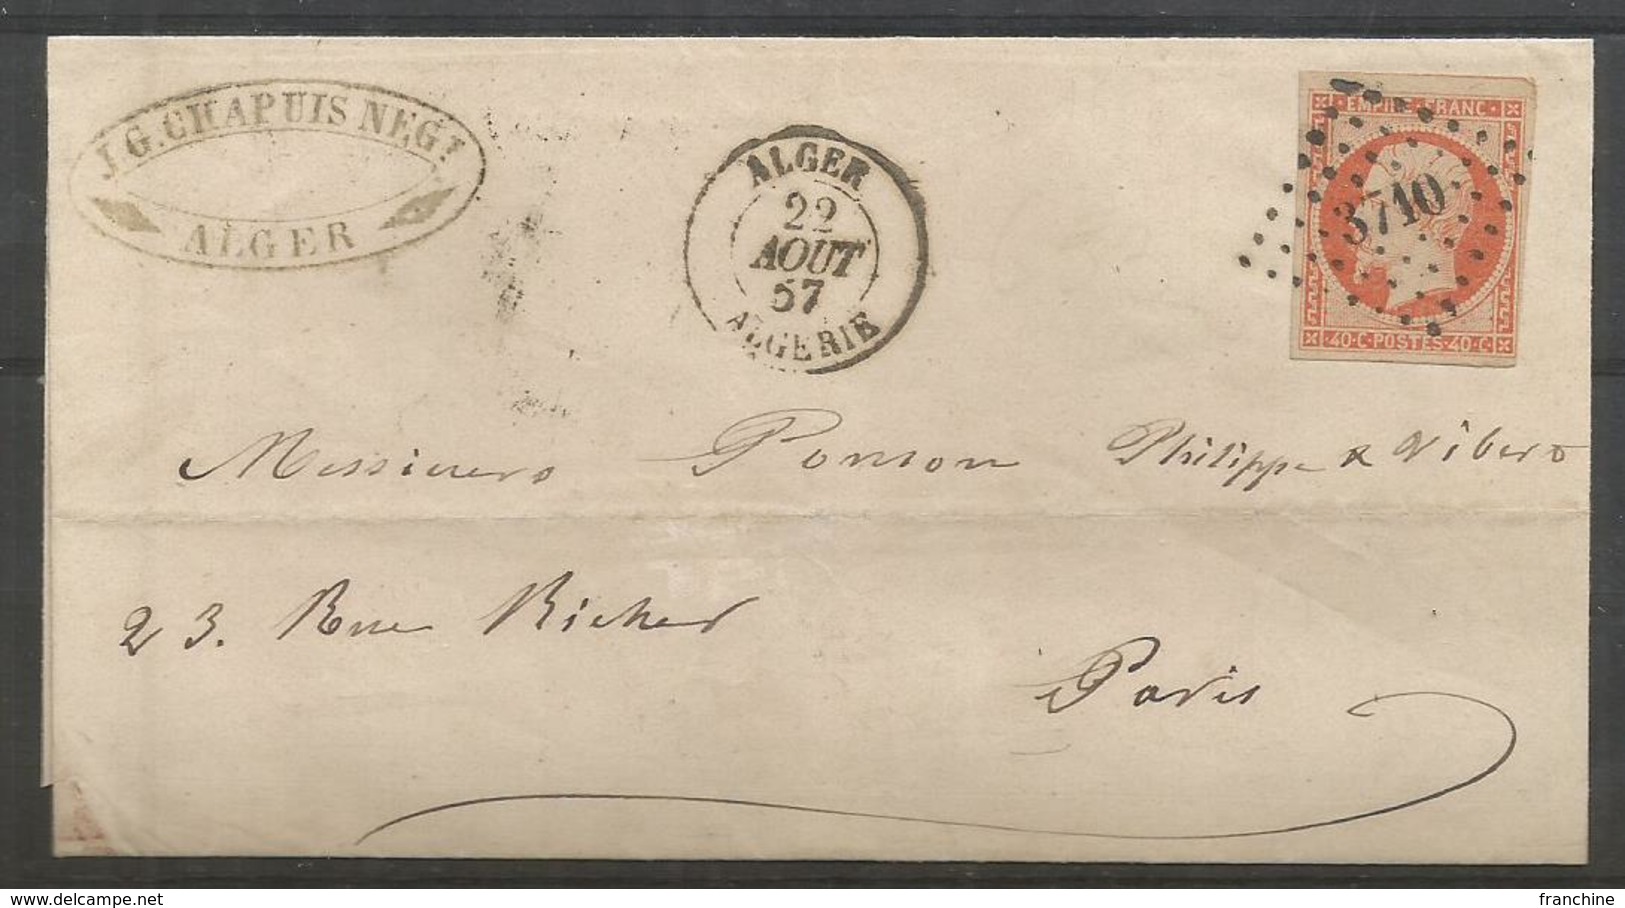 J.G. CHAPUIS NEGT
ALGER
ALGER
22
AOUT
57
ALGERIE
EMPIRE FRANC
3710
40·C·POSTES·40·C
Messieurs Ponson Philippe & Vibert
23. Rue Richer
Paris
Delcampe.net
franchine